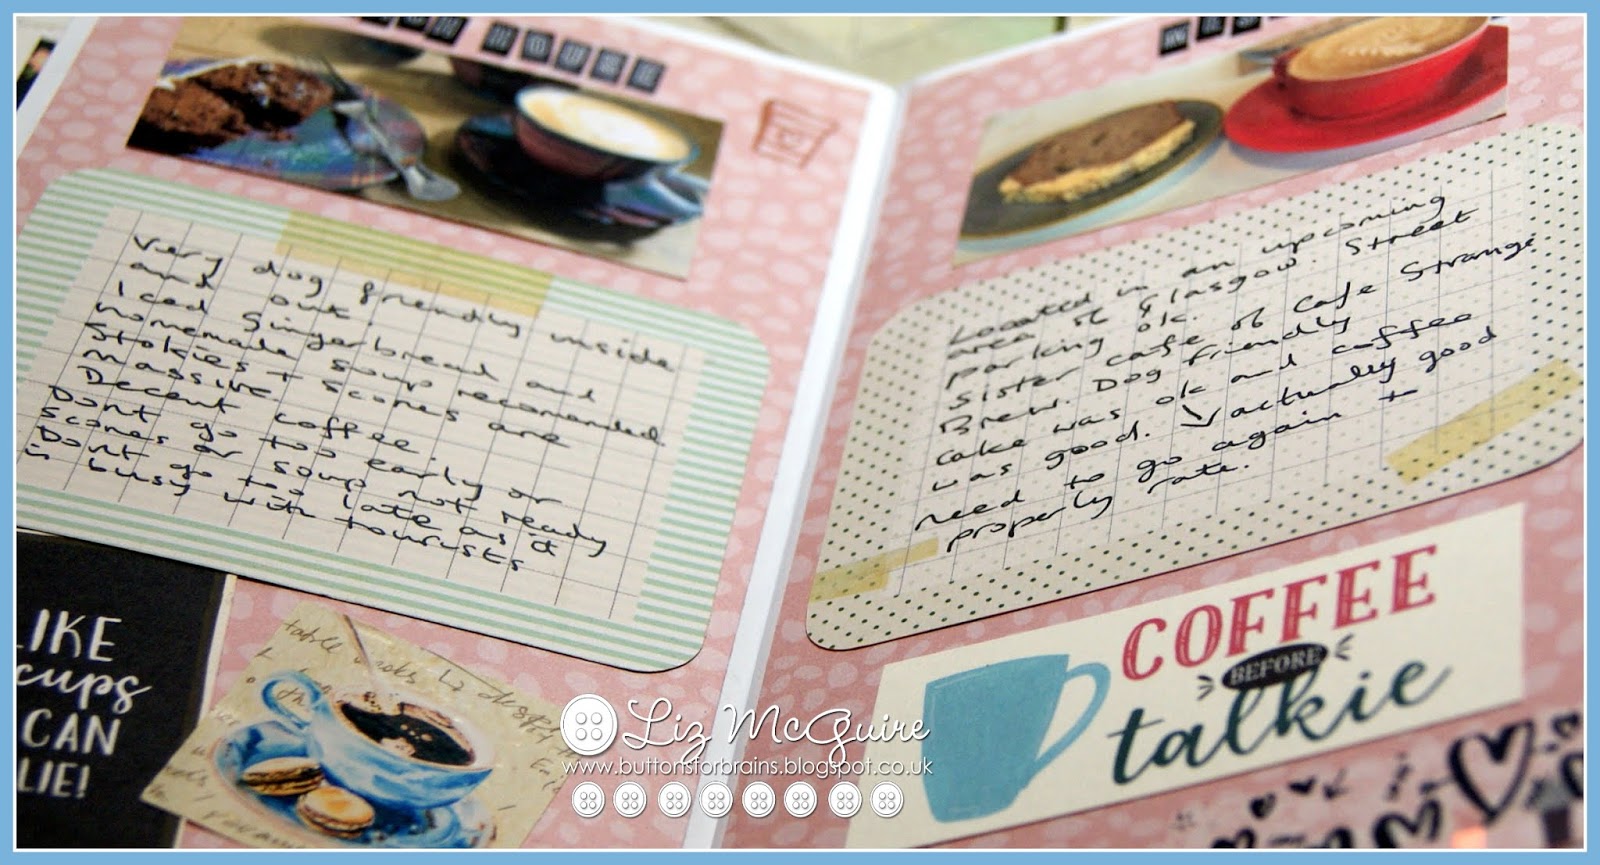 HOUSE
Very dog friendly inside
and out.
Iced gingerbread and
homemade soup recomended.
Stokies + scones are
massive
Decent coffee
Dont go too early or
scones or soup not ready
Dont go too late as it
is busy with tourists
LIKE
cups
CAN
LIE!
Located in an upcoming
area of Glasgow. Street
parking ok.
Sister cafe of Cafe Strange
Brew. Dog friendly
cake was ok and coffee
was good. actually good
need to go again to
properly rate.
COFFEE
BEFORE
talkie
Liz McGuire
www.buttonsforbrains.blogspot.co.uk